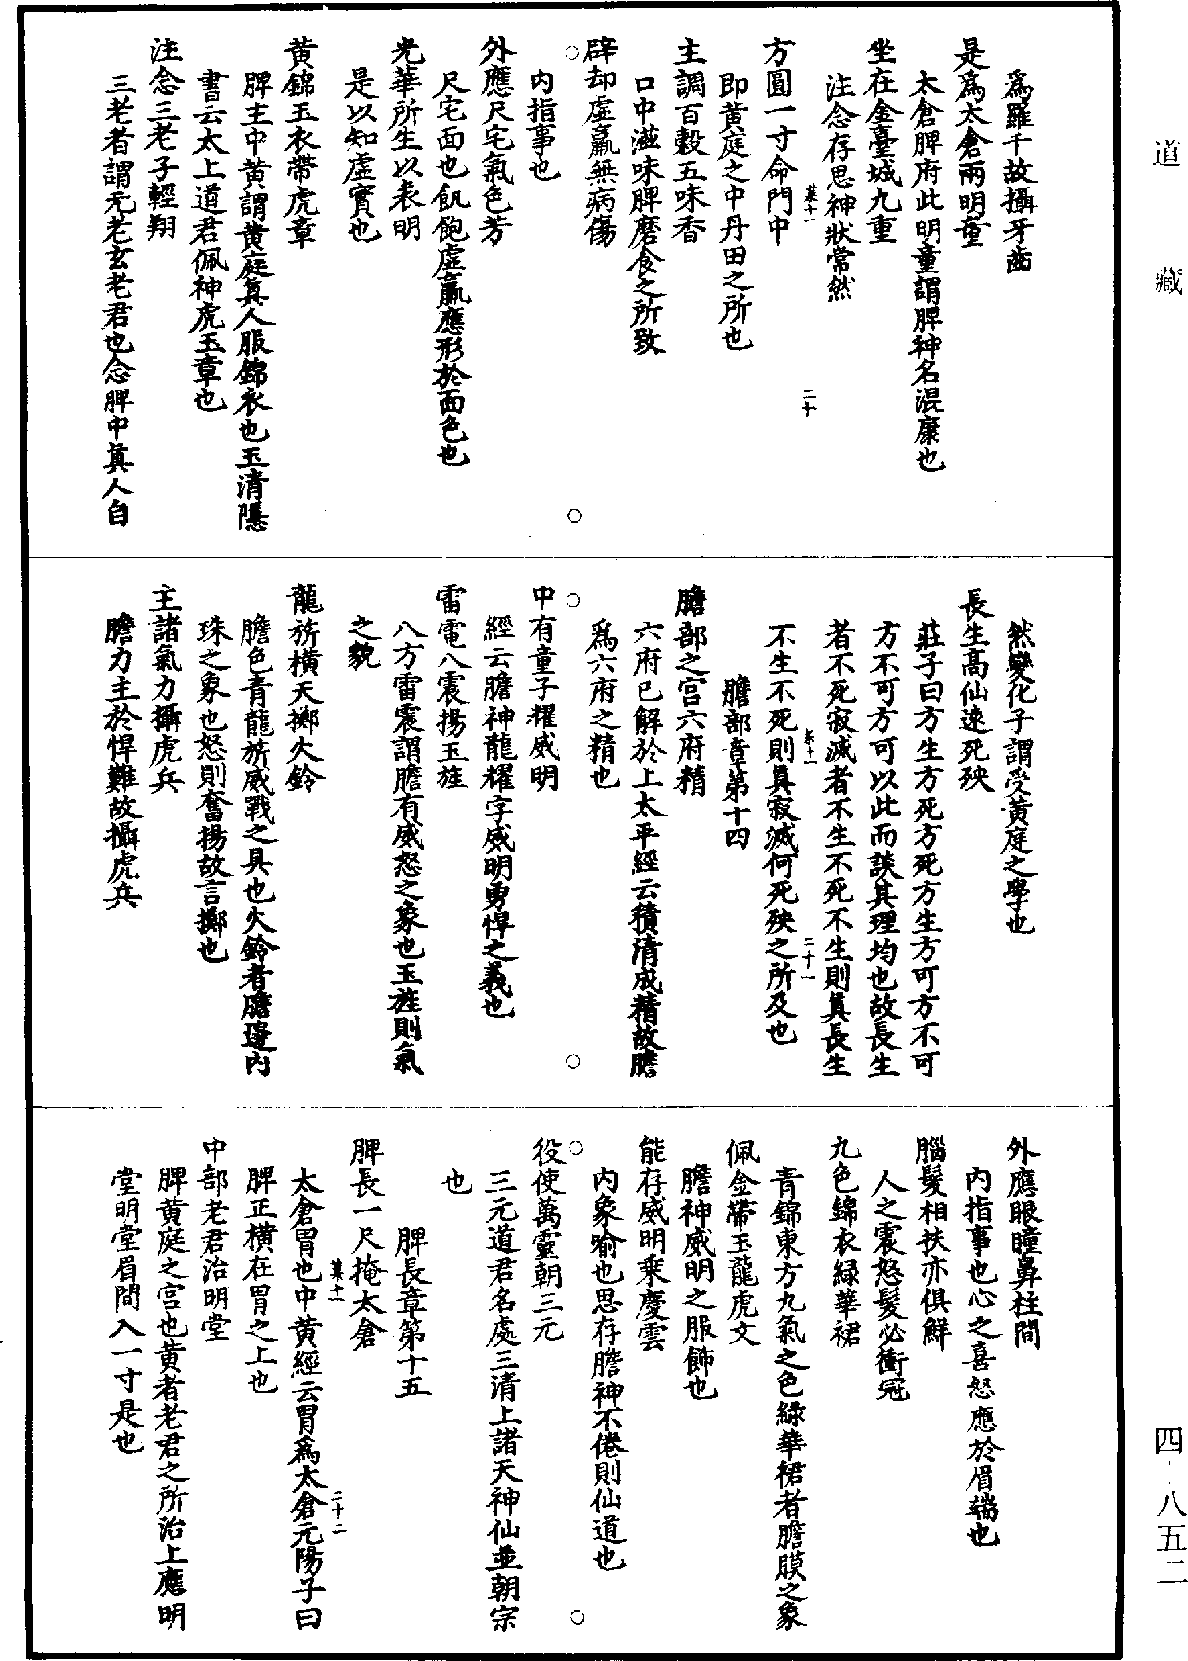 道藏
四·八五二
為羅千故攝牙齒
是為太倉兩明童
太倉脾府此明童謂脾神名混康也
坐在金臺城九重
注念存思神狀常然
菜十一
二十
方圓一寸命門中
即黄庭之中丹田之所也
主調百穀五味香
口中滋味脾磨食之所致
辟却虛羸無病傷
内指事也
外應尺宅氣色芳
尺宅面也飢飽虛羸應形於面色也
光華所生以表明
是以知虛實也
黄錦玉衣帶虎章
脾主中黄謂黄庭真人服錦衣也玉清隱
書云太上道君佩神虎玉章也
注念三老子輕翔
三老者謂元老玄老君也念脾中真人自
然變化子謂受黄庭之學也
長生高仙遠死殃
莊子曰方生方死方死方生方可方不可
方不可方可以此而談其理均也故長生
者不死寂滅者不生不死不生則真長生
菜十一
二十一
不生不死則真寂滅何死殃之所及也
膽部章第十四
膽部之宫六府精
六府已解於上太平經云積清成精故膽
為六府之精也
中有童子耀威明
經云膽神龍耀字威明勇悍之義也
雷電八震揚玉旌
八方雷震謂膽有威怒之象也玉旌則氣
之貌
龍旂横天擲火鈴
膽色青龍旂威戰之具也火鈴者膽邊内
珠之象也怒則奮揚故言擲也
主諸氣力攝虎兵
膽力主於悍難故攝虎兵
外應眼瞳鼻柱間
内指事也心之喜怒應於眉端也
腦髮相扶亦俱鮮
人之震怒髮必衝冠
九色錦衣緑華裙
青錦東方九氣之色緑華裙者膽膜之象
佩金帶玉龍虎文
膽神威明之服飾也
能存威明乘慶雲
内象喻也思存膽神不倦則仙道也
役使萬靈朝三元
三元道君名處三清上諸天神仙並朝宗
也
脾長章第十五
脾長一尺掩太倉
菜十一
二十二
太倉胃也中黄經云胃為太倉元陽子曰
脾正横在胃之上也
中部老君治明堂
脾黄庭之宫也黄者老君之所治上應明
堂明堂眉間入一寸是也